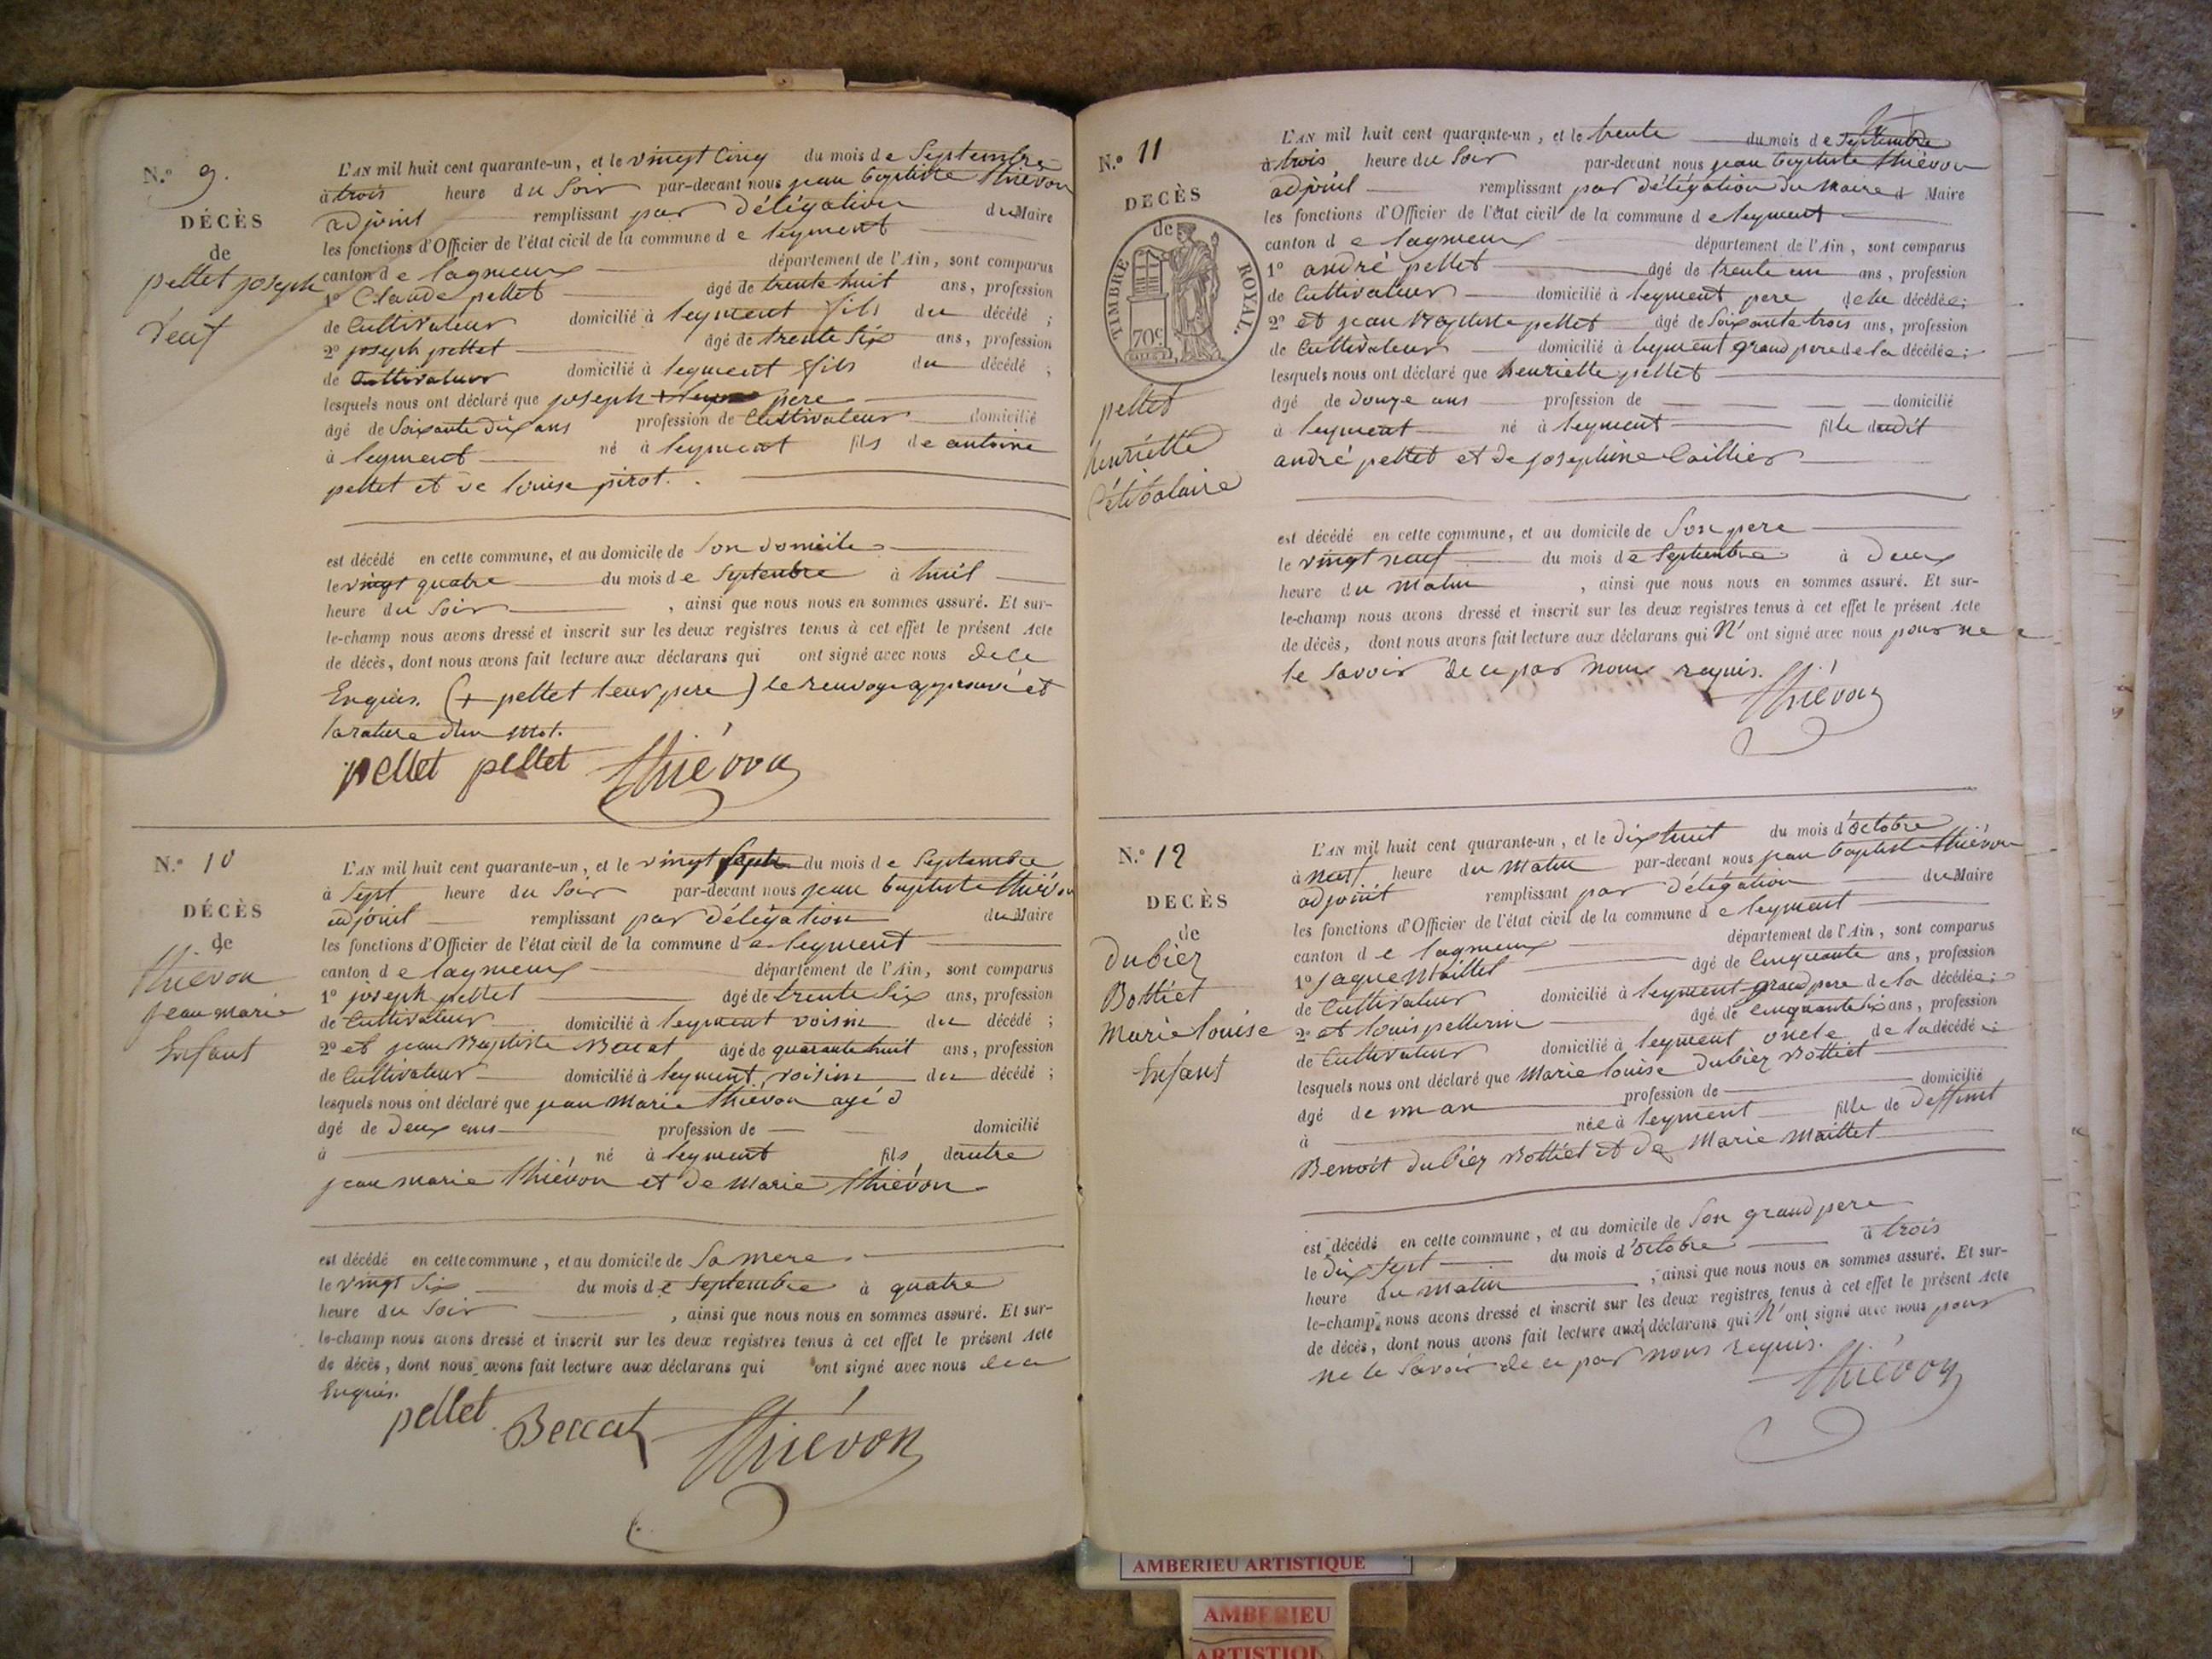 N.º 9.
DÉCÈS
de
pellet joseph
Veuf
L'AN mil huit cent quarante-un, et le vingt Cinq du mois de Septembre
à trois heure du Soir par-devant nous jean baptiste thiévon
adjoint remplissant par délégation du Maire
les fonctions d'Officier de l'état civil de la commune de leyment
canton de lagnieux département de l'Ain, sont comparus
1º Claude pellet âgé de trente huit ans, profession
de Cultivateur domicilié à leyment fils du décédé ;
2º joseph pellet âgé de trente Six ans, profession
de Cultivateur domicilié à leyment fils du décédé ;
lesquels nous ont déclaré que joseph + pere
âgé de Soixante dix ans profession de Cultivateur domicilié
à leyment né à leyment fils de antoine
pellet et de louise pirot.
est décédé en cette commune, et au domicile de Son domicile
le vingt quatre du mois de Septembre à huit
heure du Soir , ainsi que nous nous en sommes assuré. Et sur-
le-champ nous avons dressé et inscrit sur les deux registres tenus à cet effet le présent Acte
de décès, dont nous avons fait lecture aux déclarans qui ont signé avec nous de ce
Enquis. (+ pellet leur pere) le renvoy approuvé et
la rature d'un mot.
pellet pellet thiévon
N.º 10
DÉCÈS
de
thievon
jean marie
Enfant
L'AN mil huit cent quarante-un, et le vingt Sept du mois de Septembre
à Sept heure du Soir par-devant nous jean baptiste thiévon
adjoint remplissant par délégation du Maire
les fonctions d'Officier de l'état civil de la commune de leyment
canton de lagnieux département de l'Ain, sont comparus
1º joseph pellet âgé de trente Six ans, profession
de Cultivateur domicilié à leyment voisin du décédé ;
2º et jean Baptiste Beccat âgé de quarante huit ans, profession
de Cultivateur domicilié à leyment, voisin du décédé ;
lesquels nous ont déclaré que jean Marie thiévon agé d
âgé de deux ans profession de domicilié
à né à leyment fils dautre
jean marie thiévon et de Marie thiévon
est décédé en cette commune, et au domicile de Sa mere
le vingt Six du mois de Septembre à quatre
heure du Soir , ainsi que nous nous en sommes assuré. Et sur-
le-champ nous avons dressé et inscrit sur les deux registres tenus à cet effet le présent Acte
de décès, dont nous avons fait lecture aux déclarans qui ont signé avec nous de ce
Enquis.
pellet Beccat thiévon
N.º 11
DECÈS
de
TIMBRE ROYAL.
70c
pellet
henriette
Célibataire
L'AN mil huit cent quarante-un, et le trente du mois de Septembre
à trois heure du Soir par-devant nous jean baptiste thiévon
adjoint remplissant par délégation du Maire d Maire
les fonctions d'Officier de l'état civil de la commune de leyment
canton de lagnieux département de l'Ain, sont comparus
1º andré pellet âgé de trente un ans, profession
de Cultivateur domicilié à leyment pere de la décédée ;
2º et jean Baptiste pellet âgé de Soixante trois ans, profession
de Cultivateur domicilié à leyment grand pere de la décédée ;
lesquels nous ont déclaré que henriette pellet
âgé de douze ans profession de domicilié
à leyment né à leyment fille dudit
andré pellet et de josephine Caillier
est décédé en cette commune, et au domicile de Son pere
le vingt neuf du mois de Septembre à deux
heure du Matin , ainsi que nous nous en sommes assuré. Et sur-
le-champ nous avons dressé et inscrit sur les deux registres tenus à cet effet le présent Acte
de décès, dont nous avons fait lecture aux déclarans qui N' ont signé avec nous pour ne
le Savoir de ce par nous requis.
thiévon
N.º 12
DECÈS
de
Dubiez
Bottiet
Marie louise
Enfant
L'AN mil huit cent quarante-un, et le dix huit du mois d'octobre
à neuf heure du Matin par-devant nous jean baptiste thiévon
adjoint remplissant par délégation du Maire
les fonctions d'Officier de l'état civil de la commune de leyment
canton de lagnieux département de l'Ain, sont comparus
1º jaque Maillet âgé de Cinquante ans, profession
de Cultivateur domicilié à leyment grand pere de la décédée ;
2º et louis pellerin âgé de Cinquante Six ans, profession
de Cultivateur domicilié à leyment oncle de la décédée ;
lesquels nous ont déclaré que Marie louise dubiez Bottiet
âgé de un an profession de domicilié
à née à leyment fille de deffunt
Benoit dubiez Bottiet et de Marie Maillet
est décédé en cette commune, et au domicile de Son grand pere
le dix Sept du mois d'octobre à trois
heure du matin , ainsi que nous nous en sommes assuré. Et sur-
le-champ nous avons dressé et inscrit sur les deux registres tenus à cet effet le présent Acte
de décès, dont nous avons fait lecture aux déclarans qui N' ont signé avec nous pour
ne le Savoir de ce par nous requis.
thiévon
AMBERIEU ARTISTIQUE
AMBERIEU
ARTISTIQU